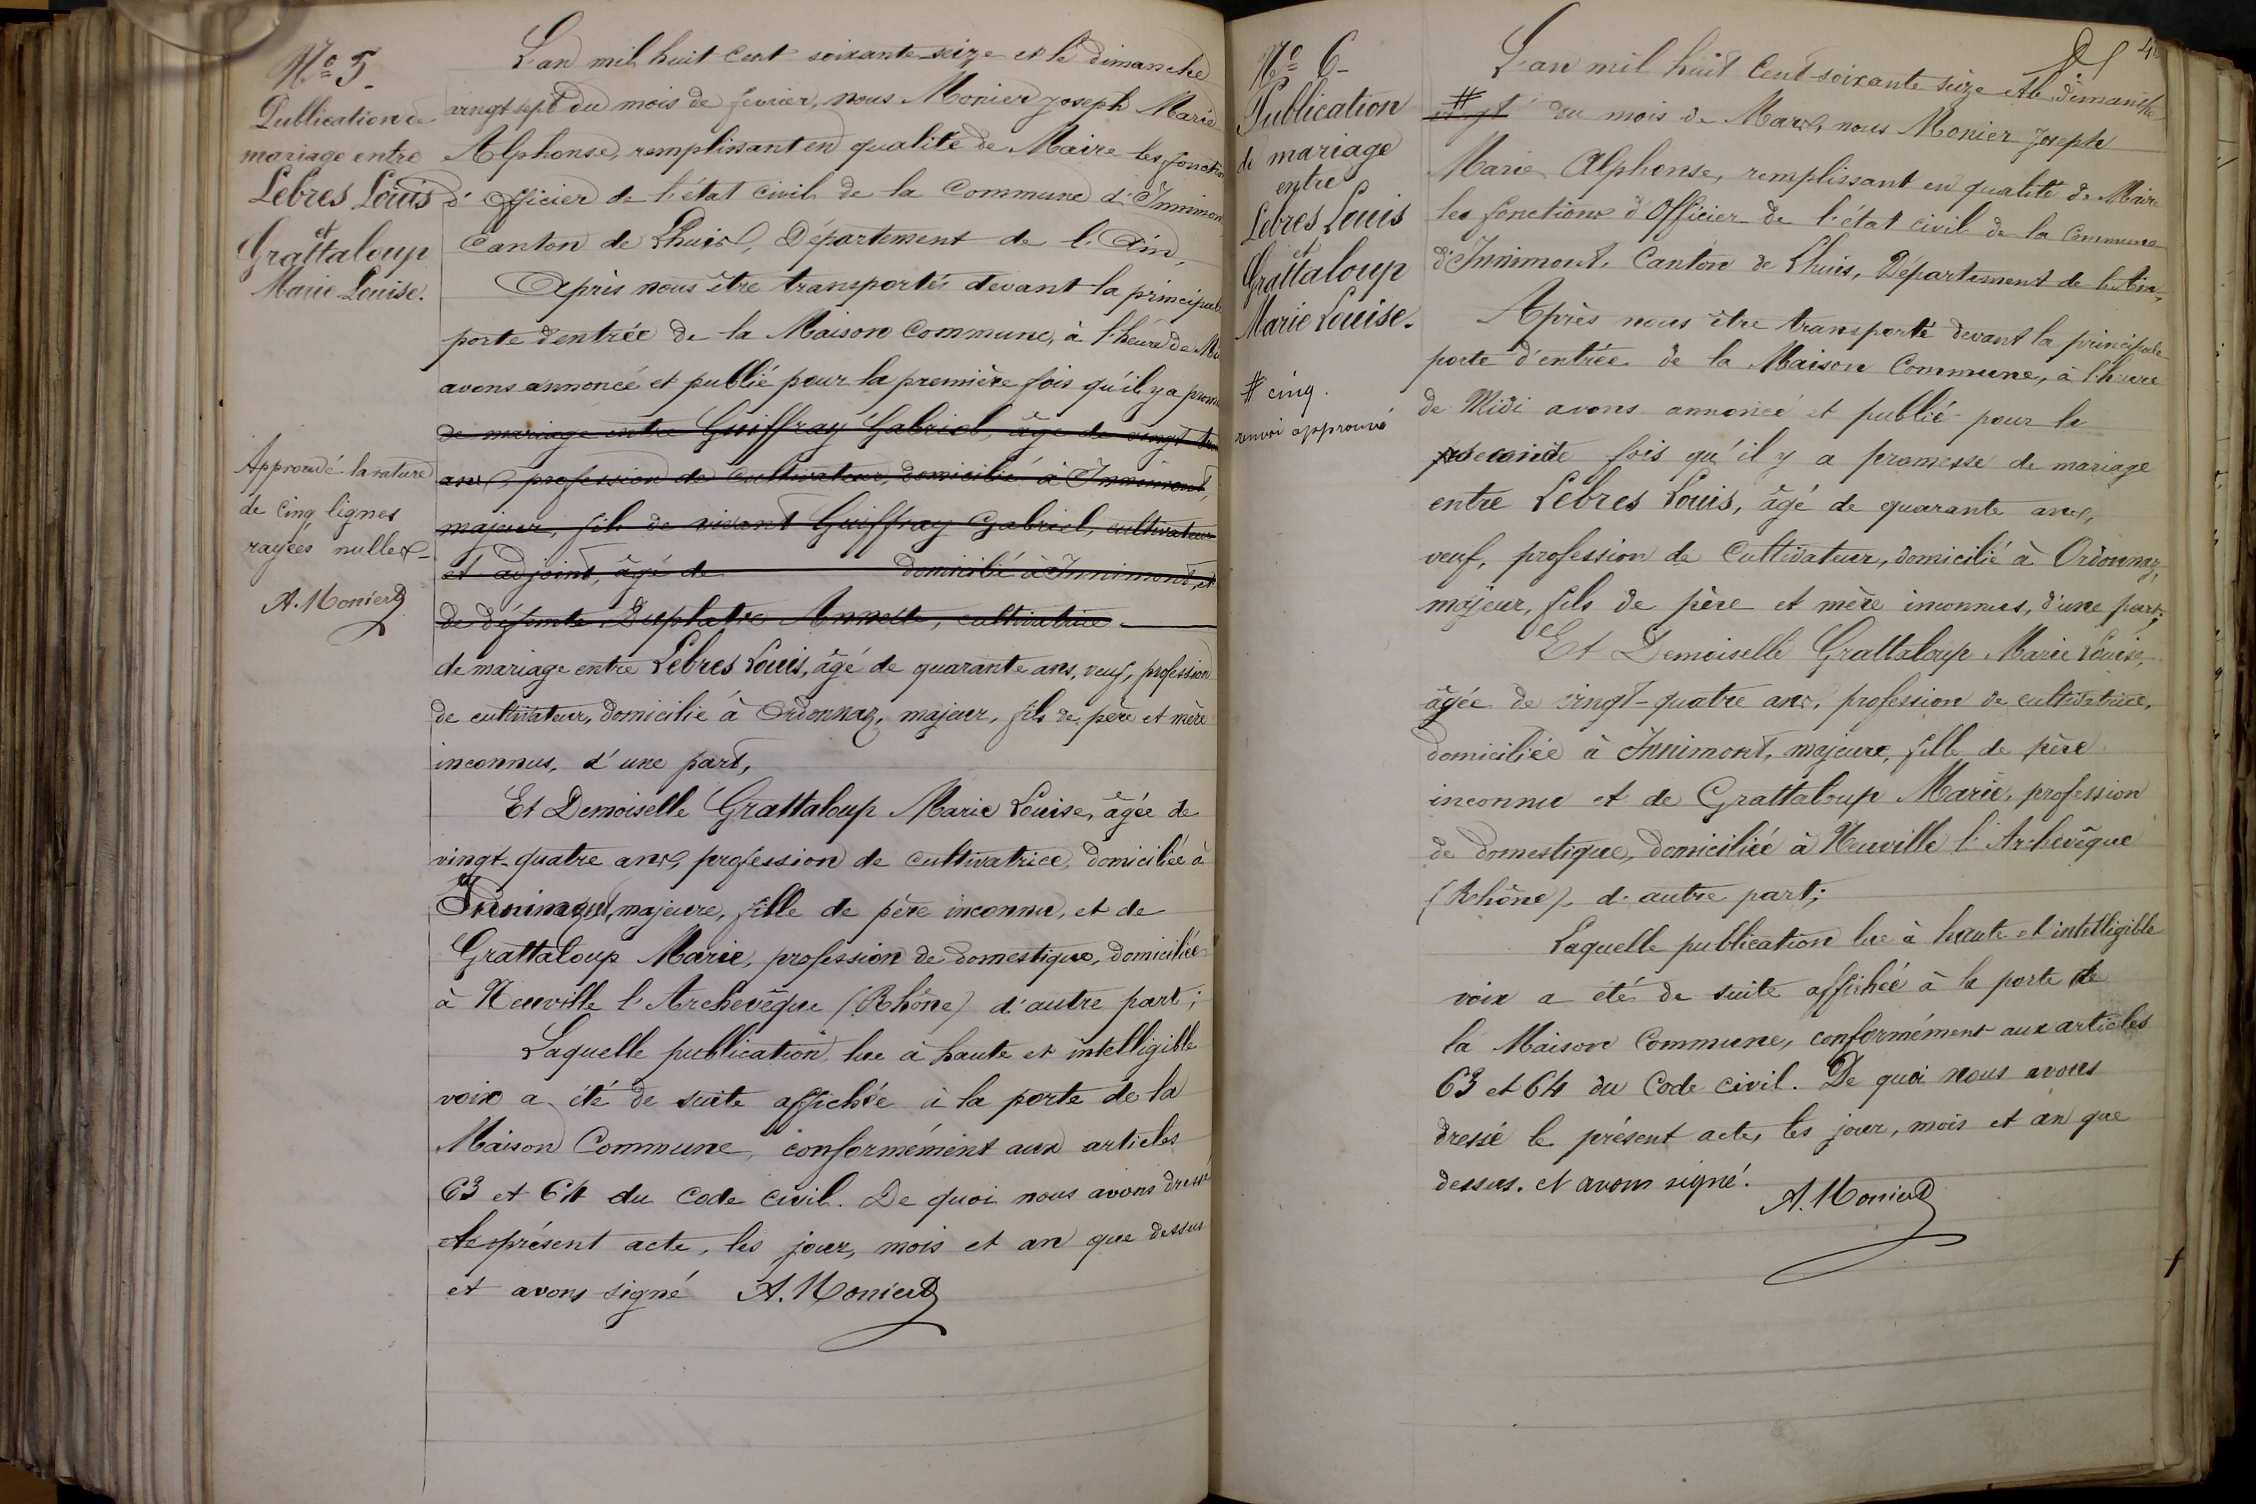 Nº 5.
Publication de
mariage entre
Lebres Louis
et
Grattaloup
Marie Louise.
Approuvé la rature
de cinq lignes
rayées nulles
A. Monier
L'an mil huit cent soixante-seize et le dimanche
vingt sept du mois de février, nous Monier Joseph Marie
Alphonse, remplissant en qualité de Maire les fonctions
d'Officier de l'état civil de la Commune d'Innimont
Canton de Lhuis, Département de l'Ain,
Après nous être transportés devant la principale
porte d'entrée de la Maison Commune, à l'heure de Mi
avons annoncé et publié pour la première fois qu'il y a prom
de mariage entre Guiffray Gabriel, âgé de vingt
ans, profession de cultivateur, domicilié à Innimont,
majeur, fils de vivant Guiffray Gabriel, cultivateur
et adjoint, âgé de domicilié à Innimont, et
de défunte Duplatre Annette, cultivatrice
de mariage entre Lebres Louis, âgé de quarante ans, veuf, profession
de cultivateur, domicilié à Ordonnaz, majeur, fils de père et mère
inconnus, d'une part,
Et Demoiselle Grattaloup Marie Louise, âgée de
vingt-quatre ans, profession de cultivatrice, domiciliée à
Innimont, majeure, fille de père inconnu, et de
Grattaloup Marie, profession de domestique, domiciliée
à Neuville l'Archevêque (Rhône) d'autre part;
Laquelle publication lue à haute et intelligible
voix a été de suite affichée à la porte de la
Maison Commune, conformément aux articles
63 et 64 du Code civil. De quoi nous avons dressé
le présent acte, les jour, mois et an que dessus
et avons signé A. Monier
Nº 6-
Publication
de mariage
entre
Lebres Louis
et
Grattaloup
Marie Louise.
# cinq.
renvoi approuvé
L'an mil huit cent soixante seize et le dimanche
# du mois de Mars, nous Monier Joseph
Marie Alphonse, remplissant en qualité de Maire
les fonctions d'Officier de l'état civil de la Commune
d'Innimont, Canton de Lhuis, Département de l'Ain,
Après nous être transporté devant la principale
porte d'entrée de la Maison Commune, à l'heure
de Midi avons annoncé et publié pour la
seconde fois qu'il y a promesse de mariage
entre Lebres Louis, âgé de quarante ans,
veuf, profession de Cultivateur, domicilié à Ordonnaz,
majeur, fils de père et mère inconnus, d'une part;
Et Demoiselle Grattaloup Marie Louise,
âgée de vingt-quatre ans, profession de cultivatrice,
domiciliée à Innimont, majeure, fille de père
inconnu et de Grattaloup Marie, profession
de domestique, domiciliée à Neuville l'Archevêque
(Rhône) d'autre part;
Laquelle publication lue à haute et intelligible
voix a été de suite affichée à la porte de
la Maison Commune, conformément aux articles
63 et 64 du Code civil. De quoi nous avons
dressé le présent acte, les jour, mois et an que
dessus. et avons signé.
A. Monier